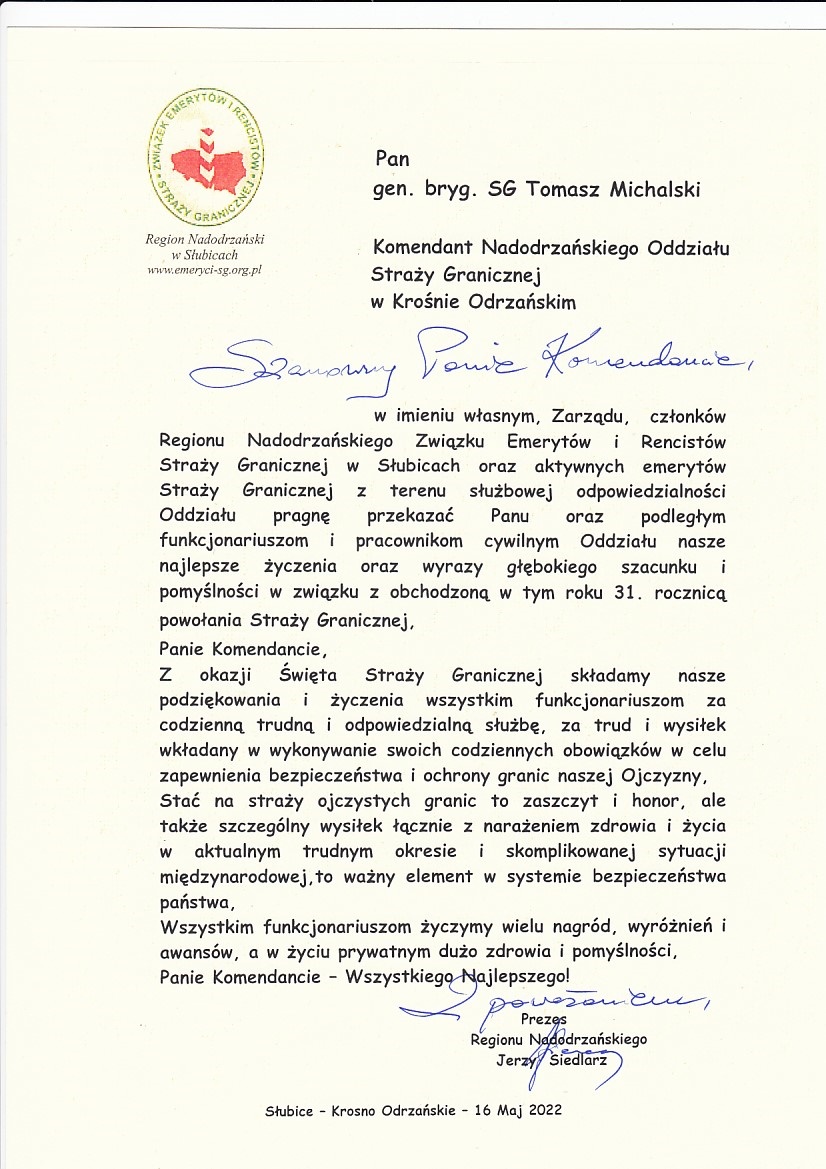 ZWIĄZEK EMERYTÓW I RENCISTÓW
STRAŻY GRANICZNEJ
Region Nadodrzański
w Słubicach
www.emeryci-sg.org.pl
Pan
gen. bryg. SG Tomasz Michalski
Komendant Nadodrzańskiego Oddziału
Straży Granicznej
w Krośnie Odrzańskim
Szanowny Panie Komendancie,
w imieniu własnym, Zarządu, członków
Regionu Nadodrzańskiego Związku Emerytów i Rencistów
Straży Granicznej w Słubicach oraz aktywnych emerytów
Straży Granicznej z terenu służbowej odpowiedzialności
Oddziału pragnę przekazać Panu oraz podległym
funkcjonariuszom i pracownikom cywilnym Oddziału nasze
najlepsze życzenia oraz wyrazy głębokiego szacunku i
pomyślności w związku z obchodzoną w tym roku 31. rocznicą
powołania Straży Granicznej,
Panie Komendancie,
Z okazji Święta Straży Granicznej składamy nasze
podziękowania i życzenia wszystkim funkcjonariuszom za
codzienną trudną i odpowiedzialną służbę, za trud i wysiłek
wkładany w wykonywanie swoich codziennych obowiązków w celu
zapewnienia bezpieczeństwa i ochrony granic naszej Ojczyzny,
Stać na straży ojczystych granic to zaszczyt i honor, ale
także szczególny wysiłek łącznie z narażeniem zdrowia i życia
w aktualnym trudnym okresie i skomplikowanej sytuacji
międzynarodowej,to ważny element w systemie bezpieczeństwa
państwa,
Wszystkim funkcjonariuszom życzymy wielu nagród, wyróżnień i
awansów, a w życiu prywatnym dużo zdrowia i pomyślności,
Panie Komendancie – Wszystkiego Najlepszego!
Z poważaniem,
Prezes
Regionu Nadodrzańskiego
Jerzy Siedlarz
Słubice – Krosno Odrzańskie – 16 Maj 2022